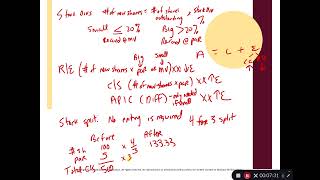 Stock Divs # of new shares = # of shares outstanding x Stock Div %
Small Big
≤ 20% > 20%
Record @ MV Record @ par
Big Small
A = L + E
R/E (# of new shares x par or MV) XX ↓E
C/S (# of new shares x par) XX ↑E
APIC (Diff) - only needed if small XX ↑E
Stock split: No entry is required 4 for 3 split
Before After
# sh 100 x 4/3 133.33
par 5 x 3
Total C/S 500
00:07:31